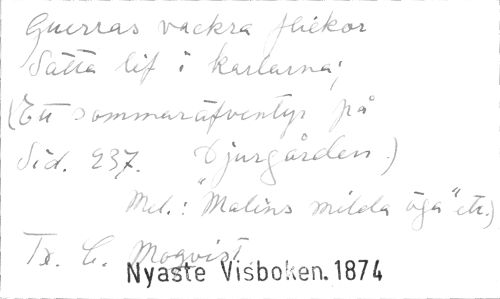 Guerras vackra flickor
Sätta lif i karlarna;
(Ett sommaräfventyr på
Sid. 237. Djurgården.)
Mel.: "Malins milda öga" etc.)
Tx. C. Moqvist.
Nyaste Visboken. 1874